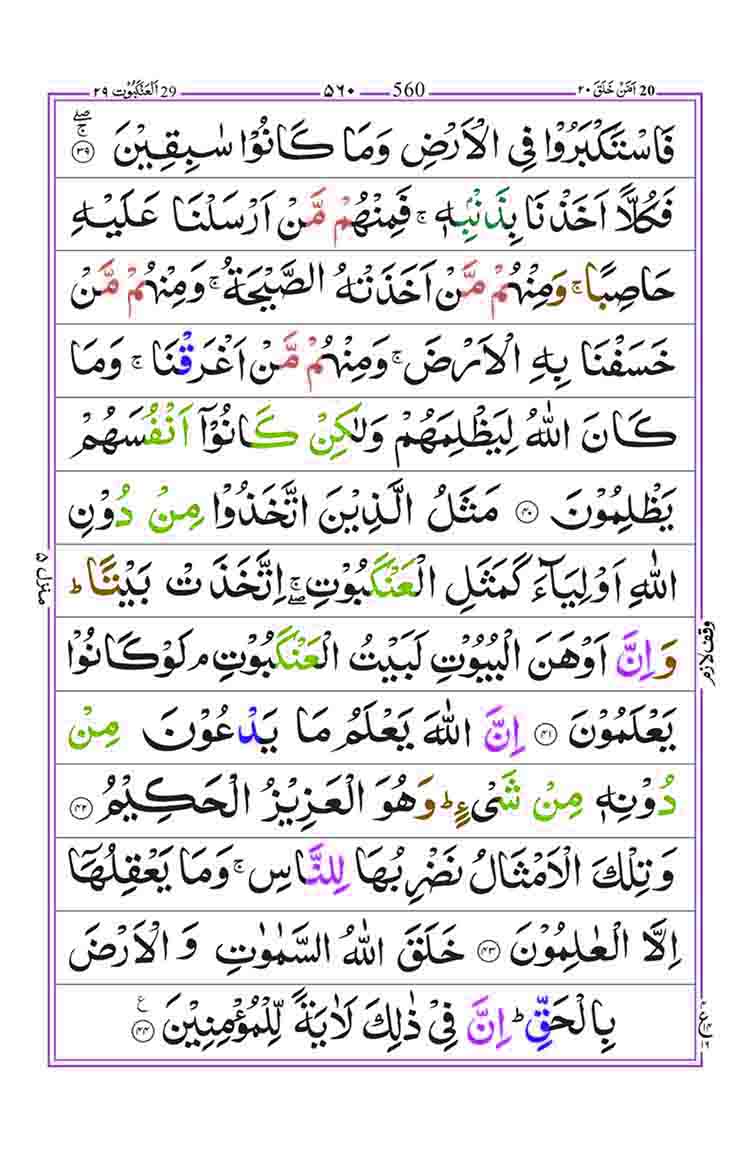 20 اَمَّنْ خَلَقَ ٢٠ 560 ٥٦٠ 29 اَلْعَنْكَبُوْت ٢٩
فَاسْتَكْبَرُوْا فِی الْاَرْضِ وَمَا كَانُوْا سٰبِقِیْنَ ۚۖ ﴿۳۹﴾
فَكُلًّا اَخَذْنَا بِذَنْۢبِهٖ ۚ فَمِنْهُمْ مَّنْ اَرْسَلْنَا عَلَیْهِ
حَاصِبًا ۚ وَمِنْهُمْ مَّنْ اَخَذَتْهُ الصَّیْحَةُ ۚ وَمِنْهُمْ مَّنْ
خَسَفْنَا بِهِ الْاَرْضَ ۚ وَمِنْهُمْ مَّنْ اَغْرَقْنَا ۚ وَمَا
كَانَ اللّٰهُ لِیَظْلِمَهُمْ وَلٰكِنْ كَانُوْۤا اَنْفُسَهُمْ
یَظْلِمُوْنَ ﴿۴۰﴾ مَثَلُ الَّذِیْنَ اتَّخَذُوْا مِنْ دُوْنِ
اللّٰهِ اَوْلِیَآءَ كَمَثَلِ الْعَنْكَبُوْتِ ۚۖ اِتَّخَذَتْ بَیْتًا ؕ
وَاِنَّ اَوْهَنَ الْبُیُوْتِ لَبَیْتُ الْعَنْكَبُوْتِ ۘ لَوْ كَانُوْا
یَعْلَمُوْنَ ﴿۴۱﴾ اِنَّ اللّٰهَ یَعْلَمُ مَا یَدْعُوْنَ مِنْ
دُوْنِهٖ مِنْ شَیْءٍ ؕ وَهُوَ الْعَزِیْزُ الْحَكِیْمُ ﴿۴۲﴾
وَتِلْكَ الْاَمْثَالُ نَضْرِبُهَا لِلنَّاسِ ۚ وَمَا یَعْقِلُهَاۤ
اِلَّا الْعٰلِمُوْنَ ﴿۴۳﴾ خَلَقَ اللّٰهُ السَّمٰوٰتِ وَالْاَرْضَ
بِالْحَقِّ ؕ اِنَّ فِیْ ذٰلِكَ لَاٰیَةً لِّلْمُؤْمِنِیْنَ ﴿۴۴﴾ ع
وقف لازم
منزل ۵